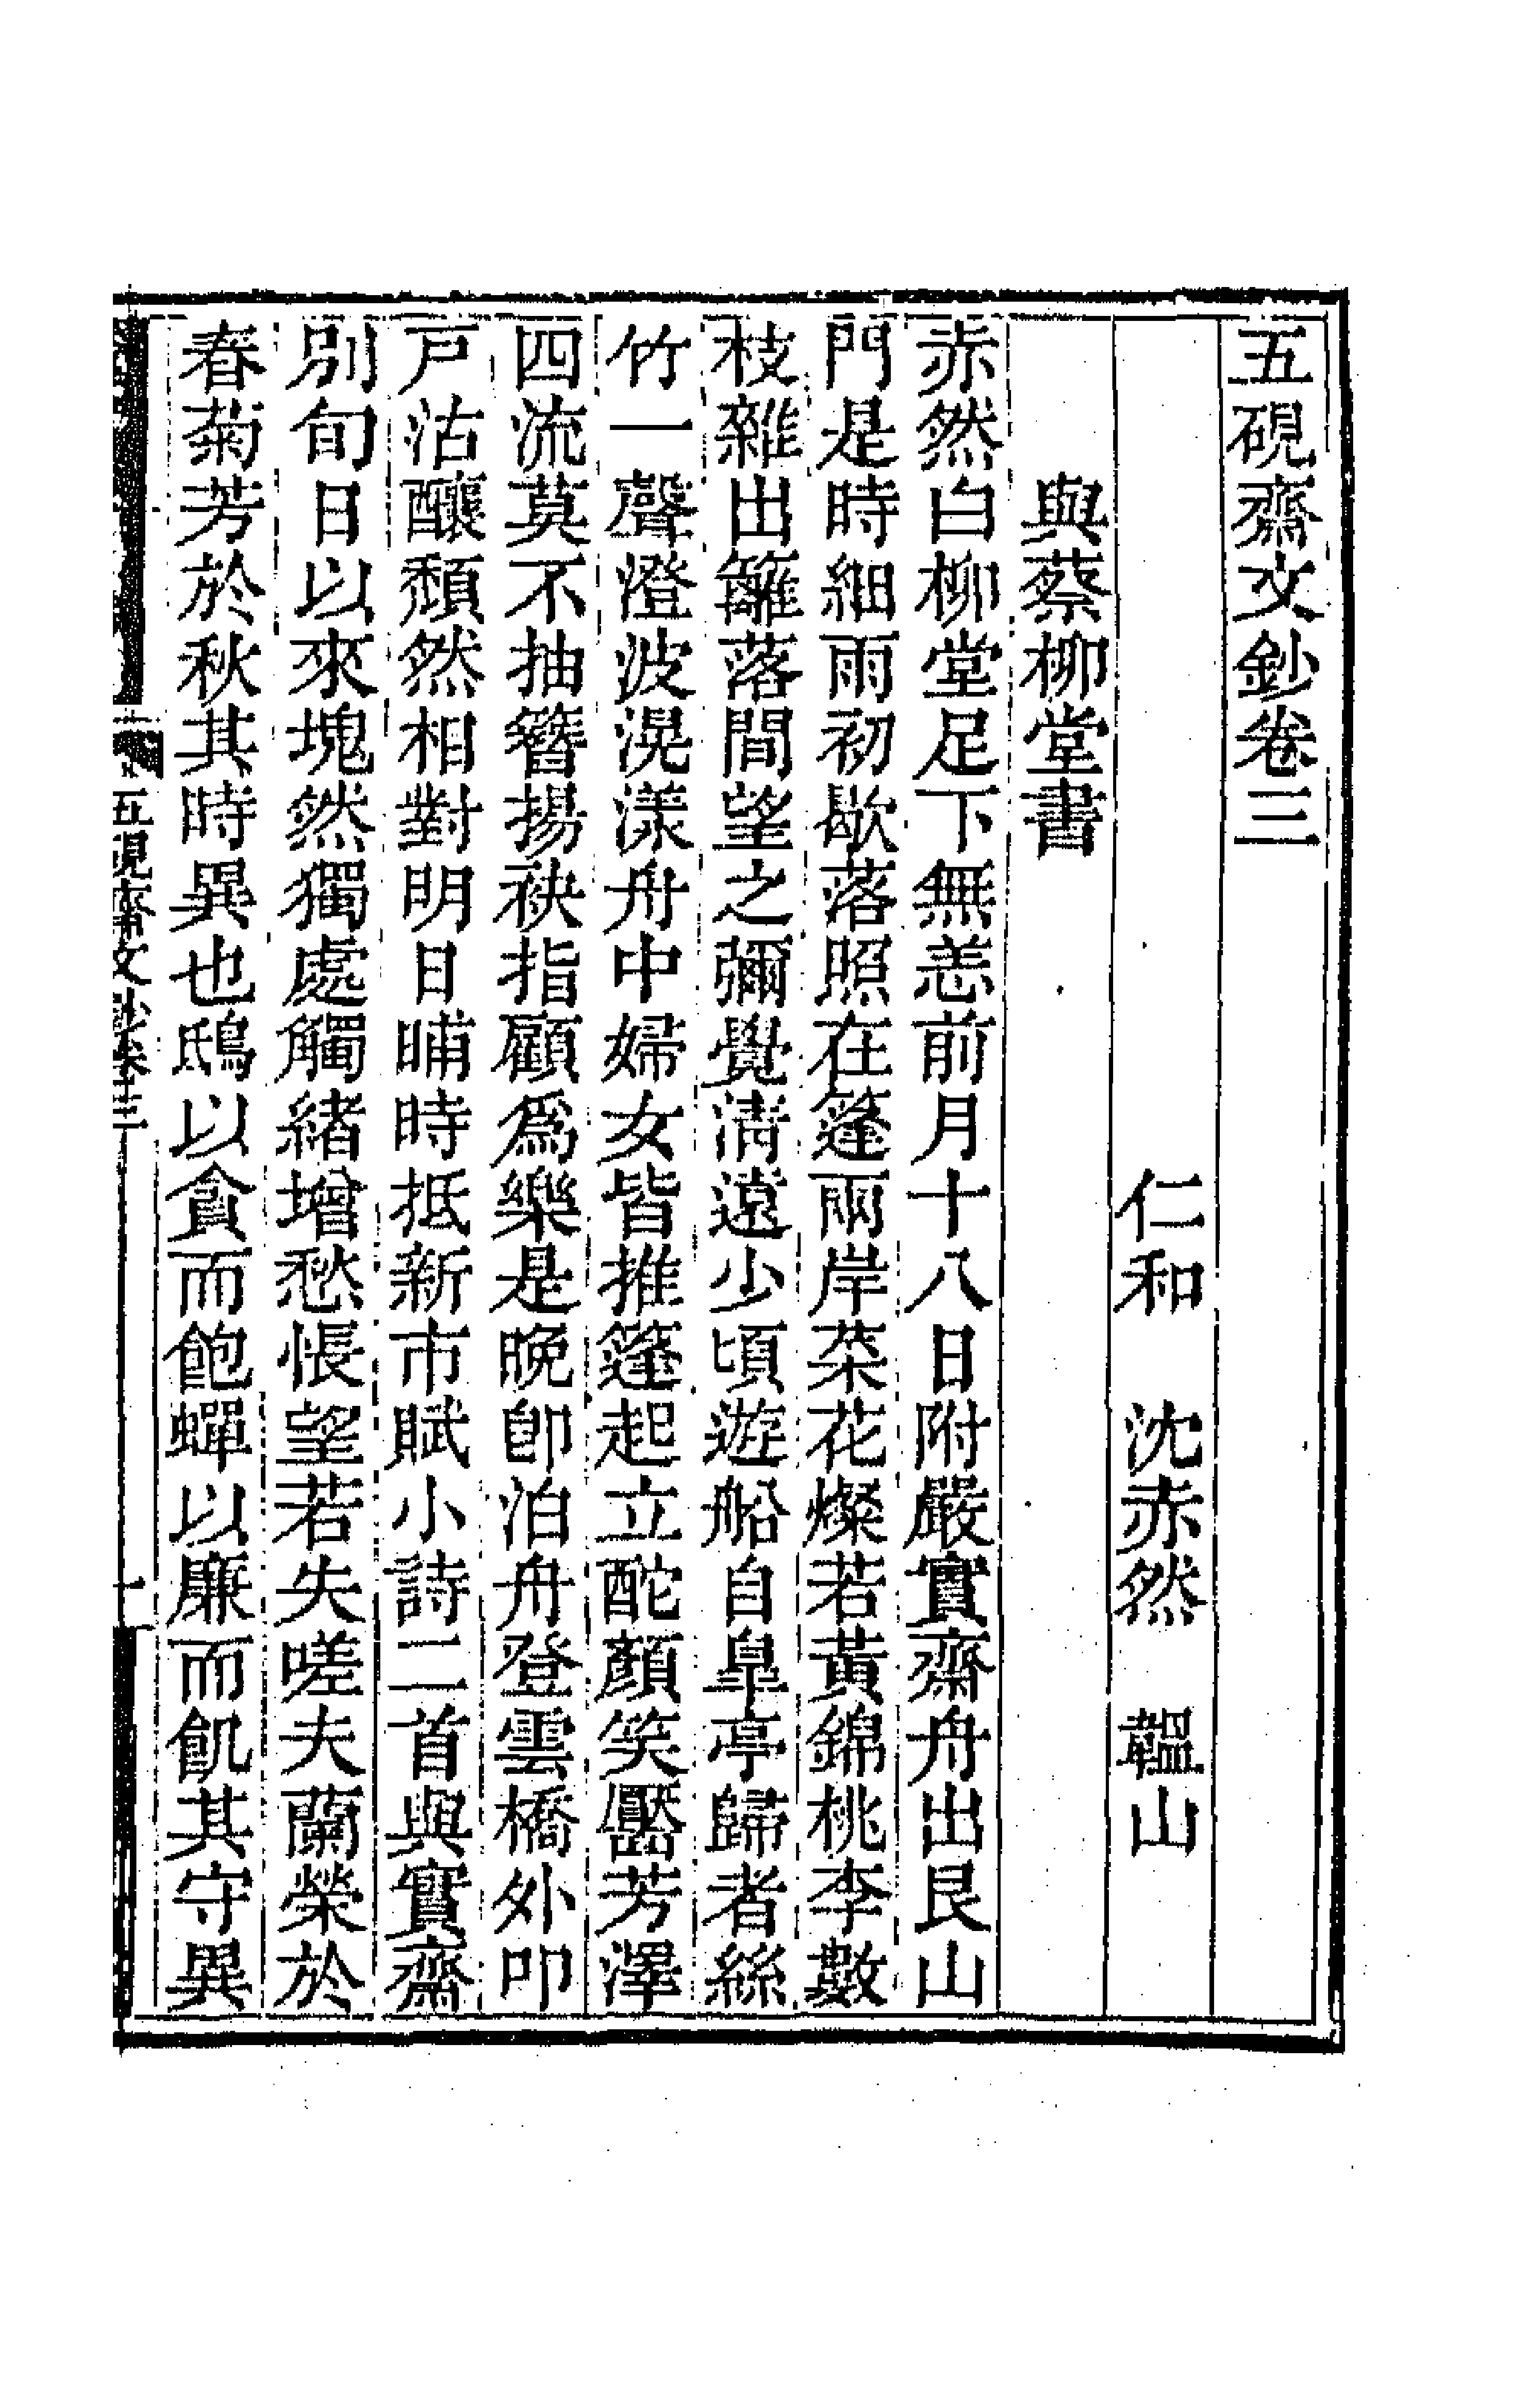 五硯齋文鈔卷三
仁和　沈赤然　韞山
與蔡柳堂書
赤然白柳堂足下無恙前月十八日附嚴實齋舟出艮山
門是時細雨初歇落照在篷兩岸菜花燦若黃錦桃李數
枝雜出籬落間望之彌覺淸遠少頃遊船自皐亭歸者絲
竹一聲澄波滉漾舟中婦女皆推篷起立酡顏笑靨芳澤
四流莫不抽簪揚袂指顧爲樂是晚卽泊舟登雲橋外叩
戸沽釀頹然相對明日晡時抵新市賦小詩二首與實齋
別旬日以來塊然獨處觸緒增愁悵望若失嗟夫蘭榮於
春菊芳於秋其時異也鴟以貪而飽蟬以廉而飢其守異
五硯齋文鈔卷三
一